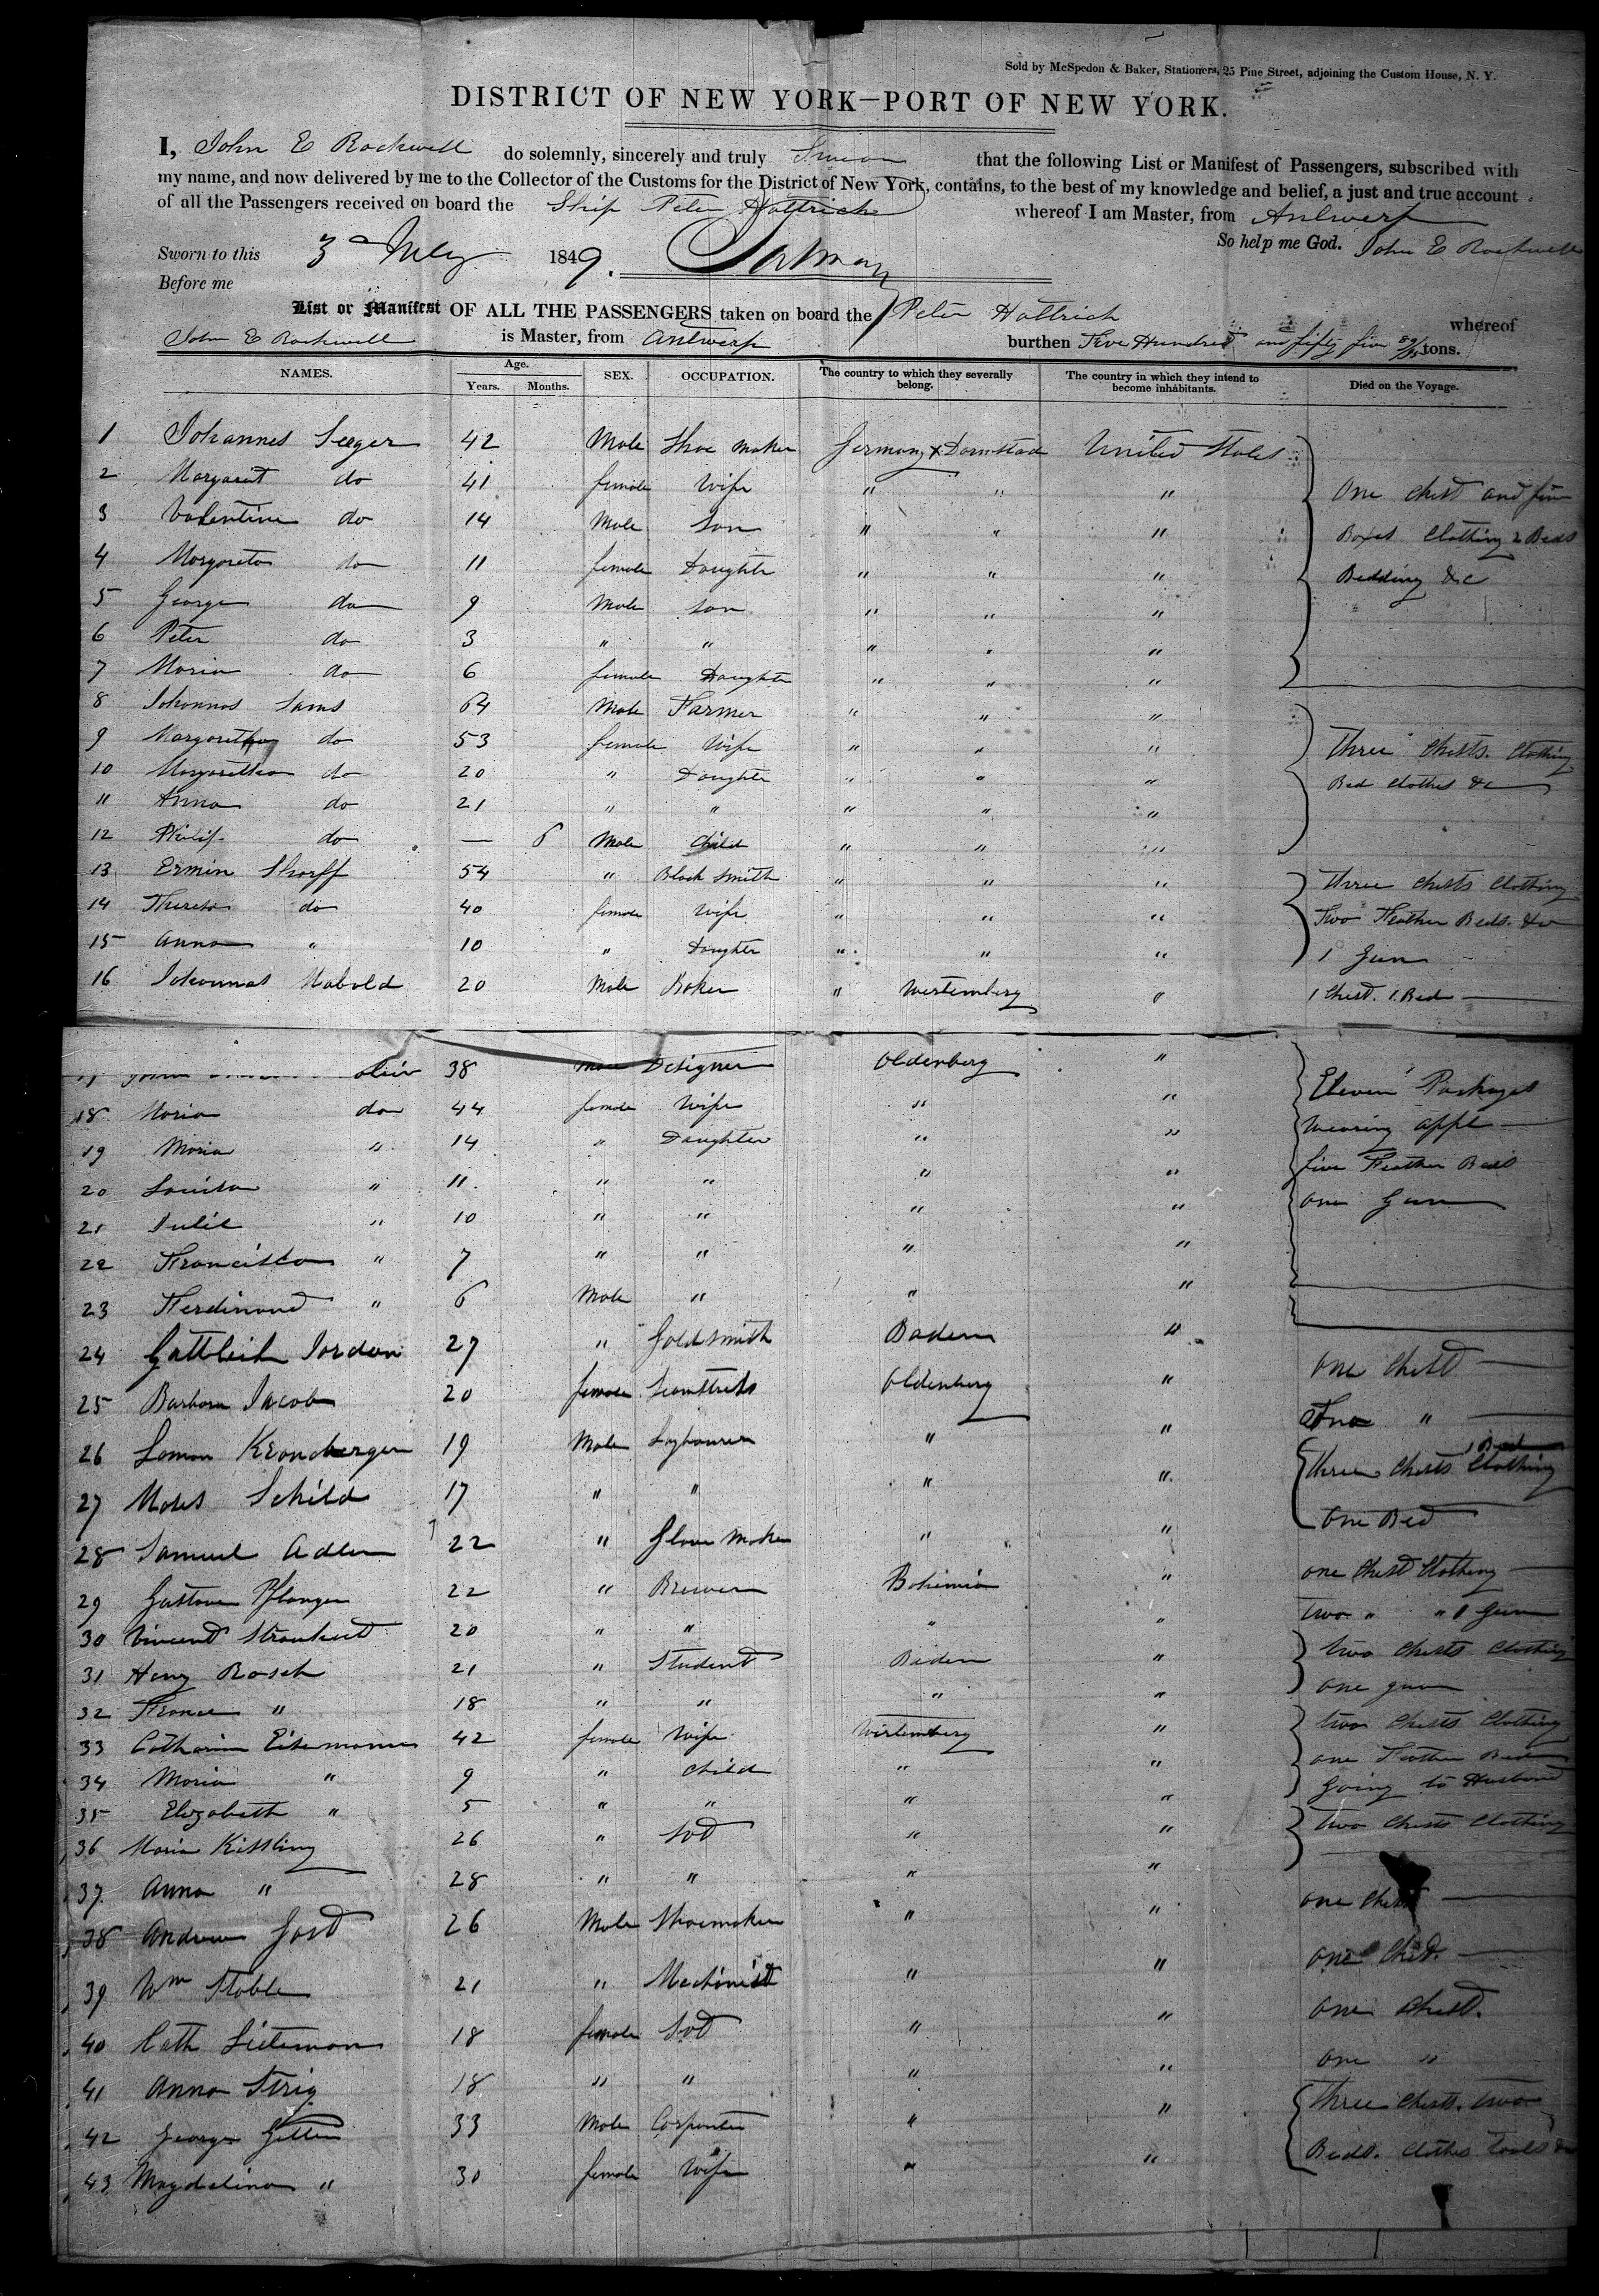 Sold by McSpedon & Baker, Stationers, 25 Pine Street, adjoining the Custom House, N. Y.
DISTRICT OF NEW YORK—PORT OF NEW YORK.
I, John E Rockwell do solemnly, sincerely and truly Swear that the following List or Manifest of Passengers, subscribed with
my name, and now delivered by me to the Collector of the Customs for the District of New York, contains, to the best of my knowledge and belief, a just and true account
of all the Passengers received on board the Ship Peter Hattrick whereof I am Master, from Antwerp
So help me God. John E Rockwell
Sworn to this 3 July 1849.
Before me
List or Manifest OF ALL THE PASSENGERS taken on board the Peter Hattrick whereof
John E Rockwell is Master, from Antwerp burthen Five Hundred and fifty five 59/95 tons.
NAMES. Age. Years. Months. SEX. OCCUPATION. The country to which they severally belong. The country in which they intend to become inhabitants. Died on the Voyage.
1 Johannes Seeger 42 Male Shoe maker Germany Darmstad United States
2 Margaret do 41 female Wife " " " One chest and five
3 Valentine do 14 Male Son " " " Boxes Clothing 2 Beds
4 Margareta do 11 female Daughter " " " Bedding &c
5 George do 9 Male Son " " "
6 Peter do 3 " " " " "
7 Maria do 6 female Daughter " " "
8 Johannas Sams 64 Male Farmer " " "
9 Margaretha do 53 female Wife " " " Three Chests. Clothing
10 Margaretha do 20 " Daughter " " " Bed Clothes &c
11 Anna do 21 " " " " "
12 Philip do — 6 Male Child " " "
13 Ermin Sharff 54 " Black Smith " " " Three Chests Clothing
14 Theresa do 40 female Wife " " " Two Feather Beds. &c
15 Anna " 10 " Daughter " " " 1 Gun
16 Johannas Habold 20 Male Baker " Wertemberg " 1 Chest. 1. Bed
38 Male Designer Oldenberg " Eleven Packages
18 Maria do 44 female Wife " " Wearing appl
19 Maria " 14 " Daughter " " five Feather Beds
20 Louisa " 11 " " " " one Gun
21 Julie " 10 " " " "
22 Francisca " 7 " " " "
23 Ferdinand " 6 Male " " "
24 Gottleib Jordan 27 " Goldsmith Baden " One Chest
25 Barbara Jacob 20 female Seamstress Oldenberg " "
26 Kronberger 19 Male " " Three Chests Clothing 1 Bed
27 Moses Schild 17 " " " " One Bed
28 Samuel Adler 22 " Glove Maker " " one Chest Clothing
29 Gustave Pflanger 22 " Brewer Bohemia " two " " 1 Gun
30 Vincent 20 " " " " two Chests Clothing
31 Heny Rosch 21 " Student Baden " one gun
32 " 18 " " " " two Chests Clothing
33 Catharin Eisemann 42 female Wife Wirtemberg " one Feather Bed
34 Maria " 9 " Child " " going to Husband
35 Elizabeth " 5 " " " " two Chests Clothing
36 Maria Kissling 26 " " "
37 Anna " 28 " " " " one Chest
38 Andrew Jost 26 Male Shoemaker " " one Chest.
39 Wm Stable 21 " Machinist " " One Chest.
40 Cath 18 female " " one "
41 Anna Strig 18 " " " " Three Chests. two
42 George 33 Male Carpenter " " Beds. Clothes Tools &c
43 Magdelina " 30 female Wife " "